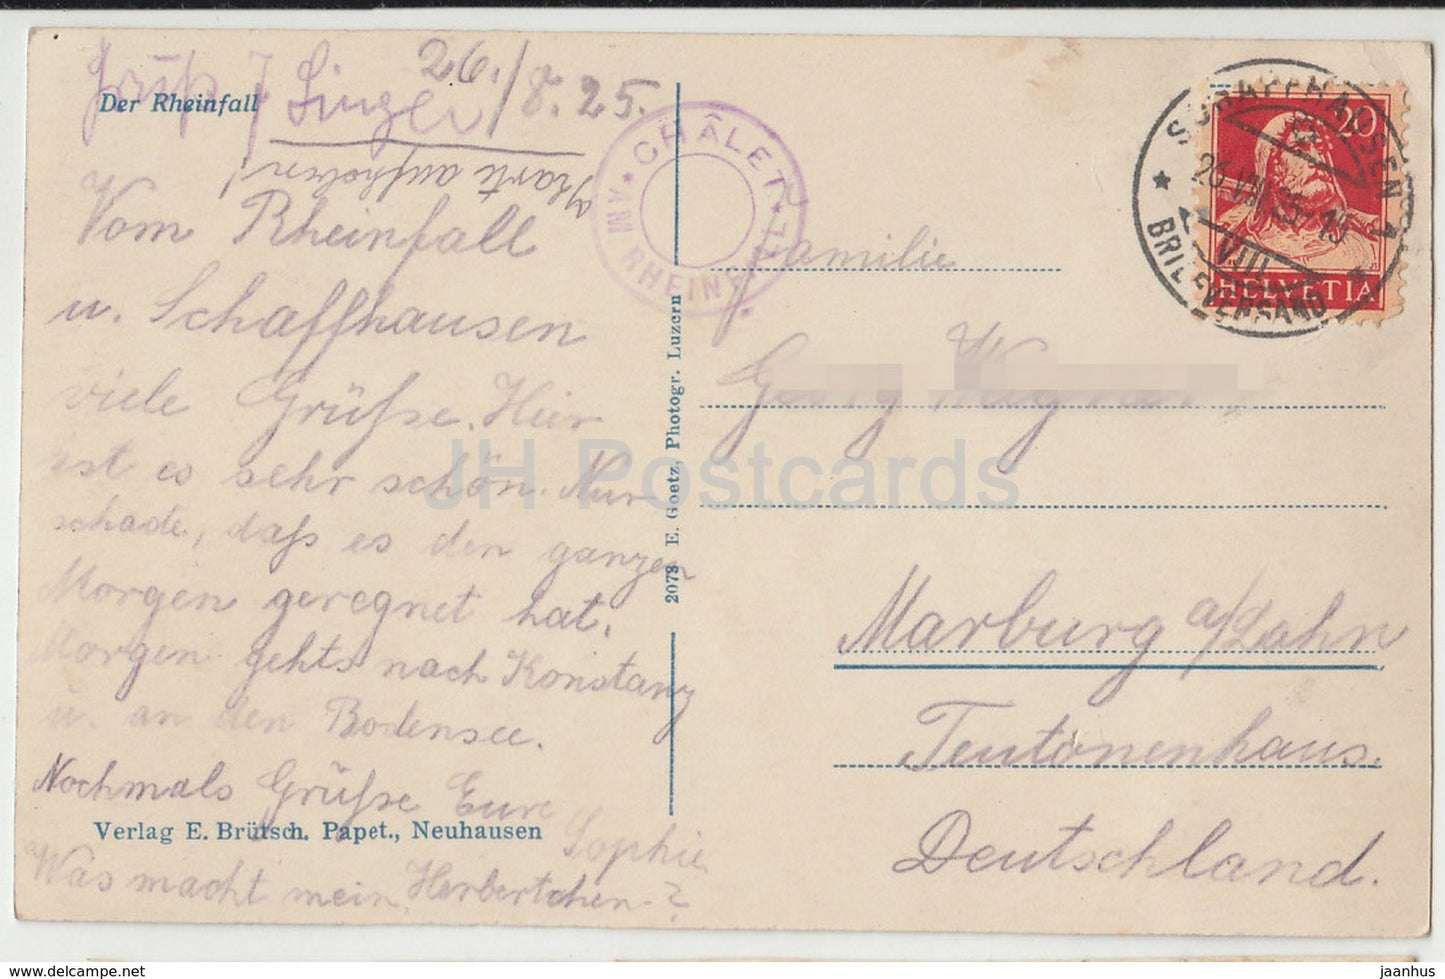 Der Rheinfall
Gruß J Singer
26./8.25.
Karte aufheben!
Vom Rheinfall
u. Schaffhausen
viele Grüße. Hier
ist es sehr schön. Nur
schade, daß es den ganzen
Morgen geregnet hat.
Morgen gehts nach Konstanz
u. an den Bodensee.
Nochmals Grüße Eure
Sophie
Was macht mein Herbertchen?
Verlag E. Brütsch. Papet., Neuhausen
2073 E. Goetz, Photogr. Luzern
CHÂLET
IM RHEINFALL
SCHAFFHAUSEN 1
26.VIII.25.-15
VIII
BRIEFVERSAND
20
HELVETIA
Familie
Georg
Marburg a/Lahn
Teutonenhaus.
Deutschland.
JH Postcards
delcampe.net
jaanhus